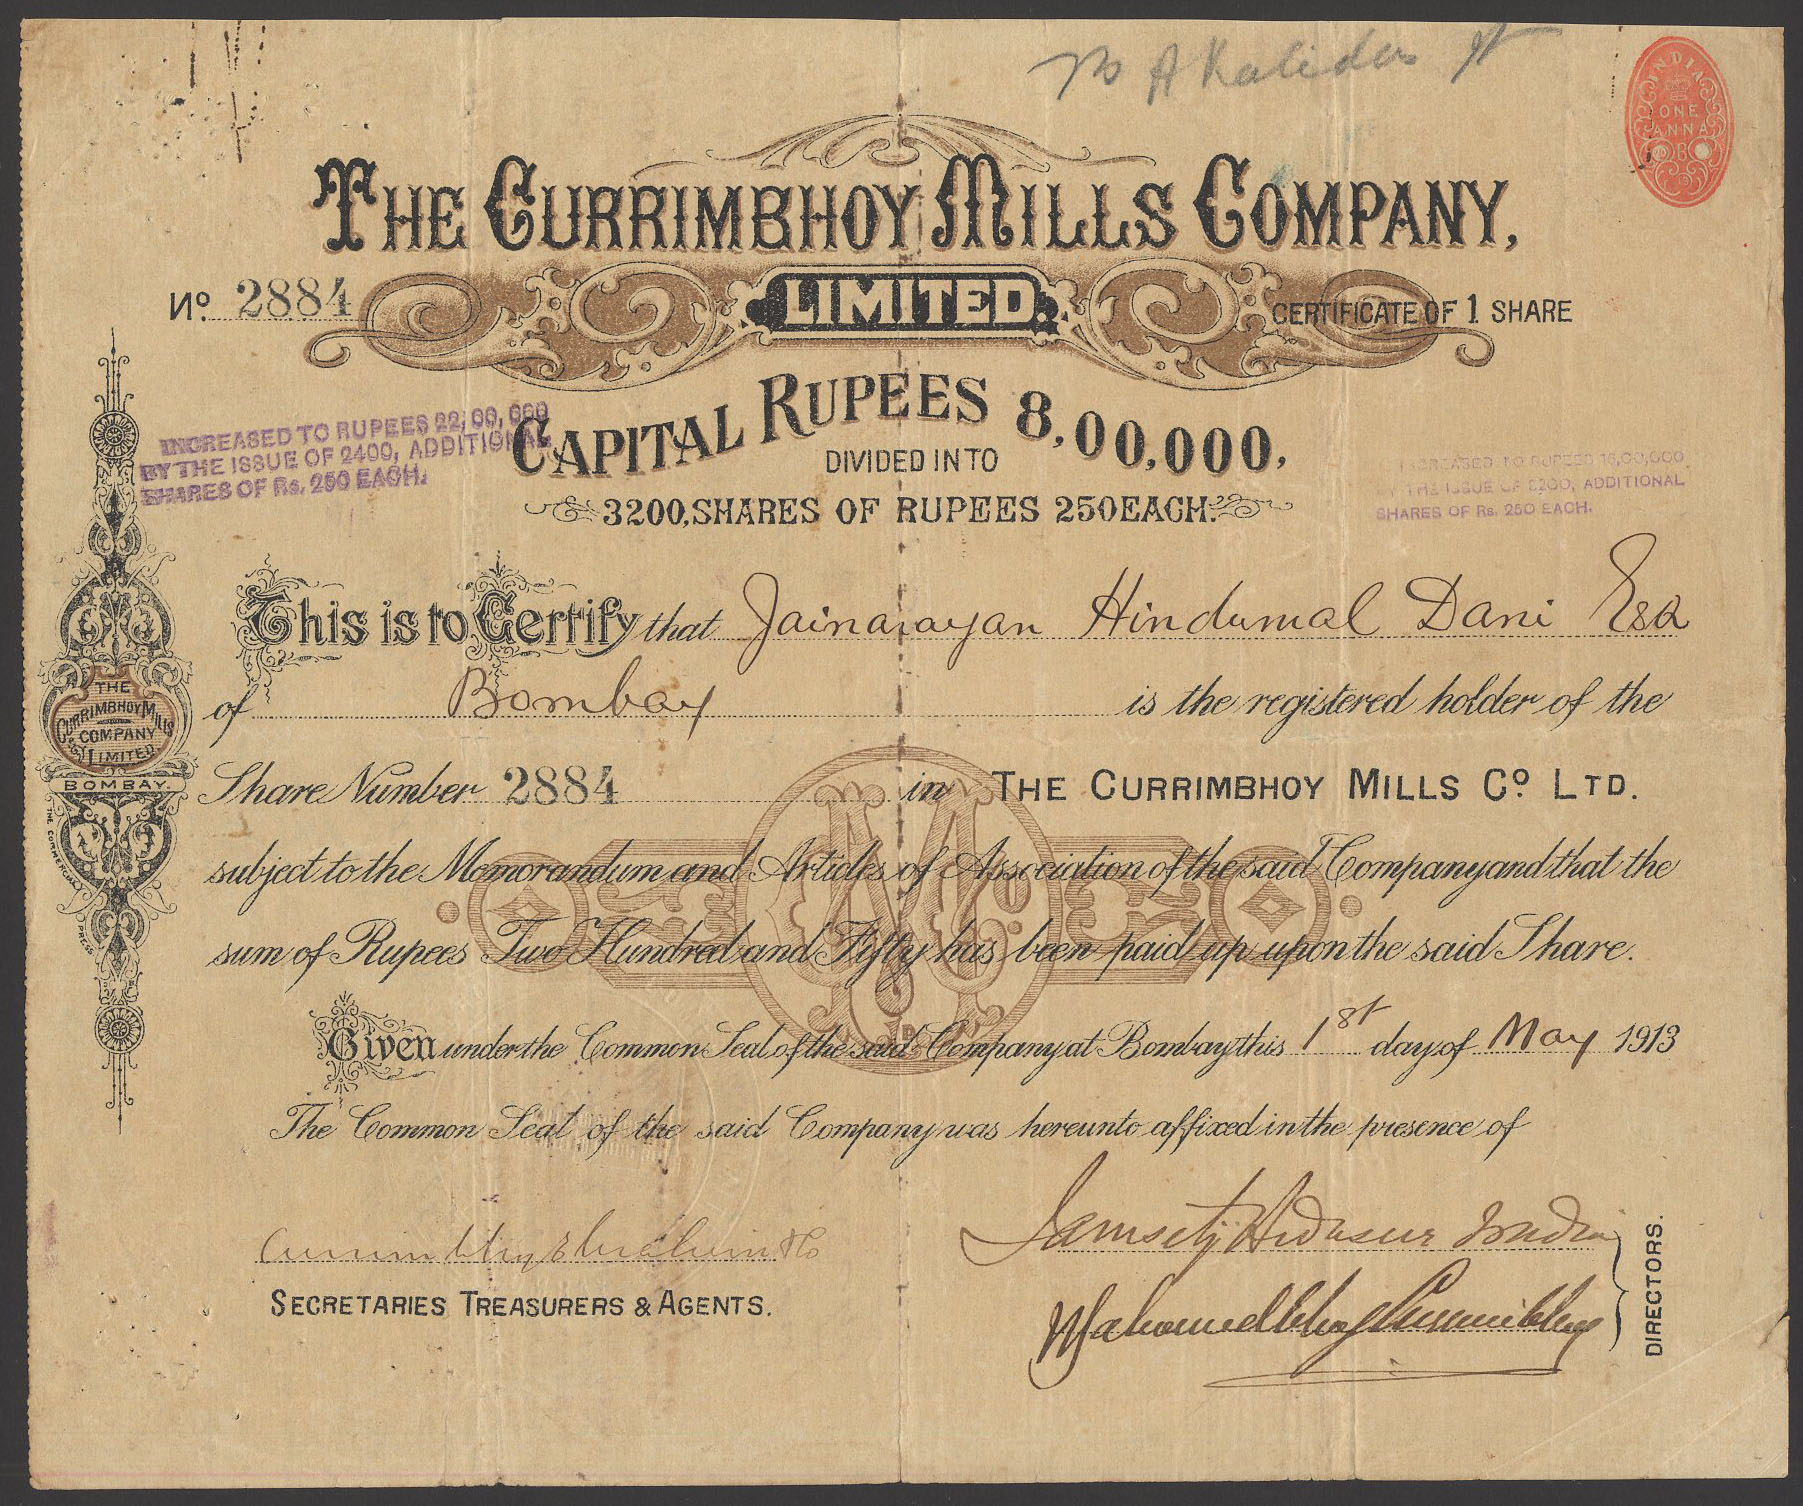 INDIA
ONE
ANNA
THE CURRIMBHOY MILLS COMPANY,
LIMITED.
No. 2884
CERTIFICATE OF 1 SHARE
CAPITAL RUPEES 8,00,000,
DIVIDED INTO
3200, SHARES OF RUPEES 250 EACH.
INCREASED TO RUPEES 22,00,000
BY THE ISSUE OF 2400, ADDITIONAL
SHARES OF Rs. 250 EACH.
INCREASED TO RUPEES 16,00,000
BY THE ISSUE OF 3200, ADDITIONAL
SHARES OF Rs. 250 EACH.
This is to Certify that Jainarayan Hindumal Dani Esq
of Bombay is the registered holder of the
Share Number 2884 in THE CURRIMBHOY MILLS Co LTD.
subject to the Memorandum and Articles of Association of the said Company and that the
sum of Rupees Two Hundred and Fifty has been paid up upon the said Share.
Given under the Common Seal of the said Company at Bombay this 1st day of May 1913
The Common Seal of the said Company was hereunto affixed in the presence of
Currimbhoy Ebrahim & Co
SECRETARIES TREASURERS & AGENTS.
Jamsetji Ardaseer Wadia
Mahomedbhoy Currimbhoy
DIRECTORS.
THE
CURRIMBHOY MILLS
COMPANY
LIMITED
BOMBAY.
THE COMMERCIAL PRESS